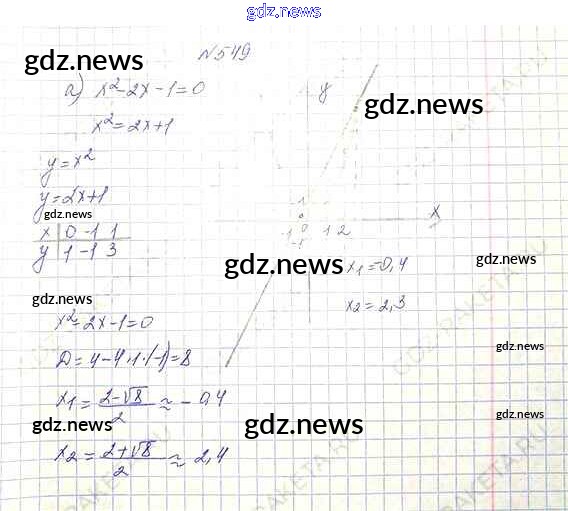 gdz.news
№549
gdz.news
а) x²-2x-1=0
y
gdz.news
x²=2x+1
y=x²
y=2x+1
gdz.news
x | 0 -1 1
y | 1 -1 3
1
0
-1
-1
1 2
x
gdz.news
gdz.news
x₁=-0,4
gdz.news
x₂=2,3
x²-2x-1=0
gdz.news
D=4-4·1·(-1)=8
x₁=(2-√8)/2≈-0,4
gdz.news
gdz.news
gdz.news
x₂=(2+√8)/2≈2,4
GDZ-RAKETA.RU